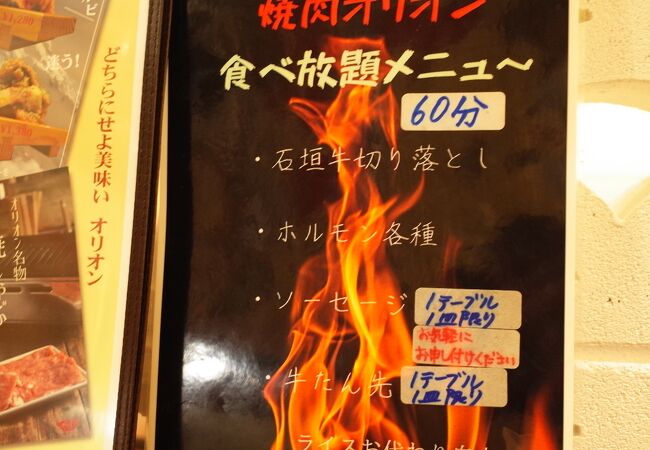 焼肉オリオン
食べ放題メニュ〜
60分
・石垣牛切り落とし
・ホルモン各種
・ソーセージ
1テーブル
1皿限り
お気軽に
お申し付けください
・牛たん先
1テーブル
1皿限り
ライスお代わり
どちらにせよ美味い オリオン
迷う!
¥1,280
オリオン名物